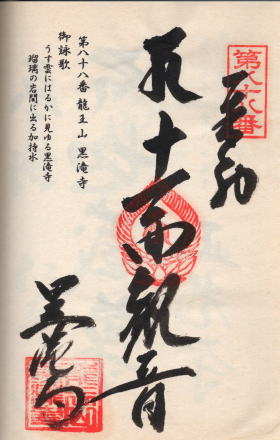 第八十八番
奉納
十一面観音
黒滝寺
第八十八番 龍王山 黒滝寺
御詠歌
うす雲にはるかに見ゆる黒滝寺
瑠璃の岩間に出る加持水